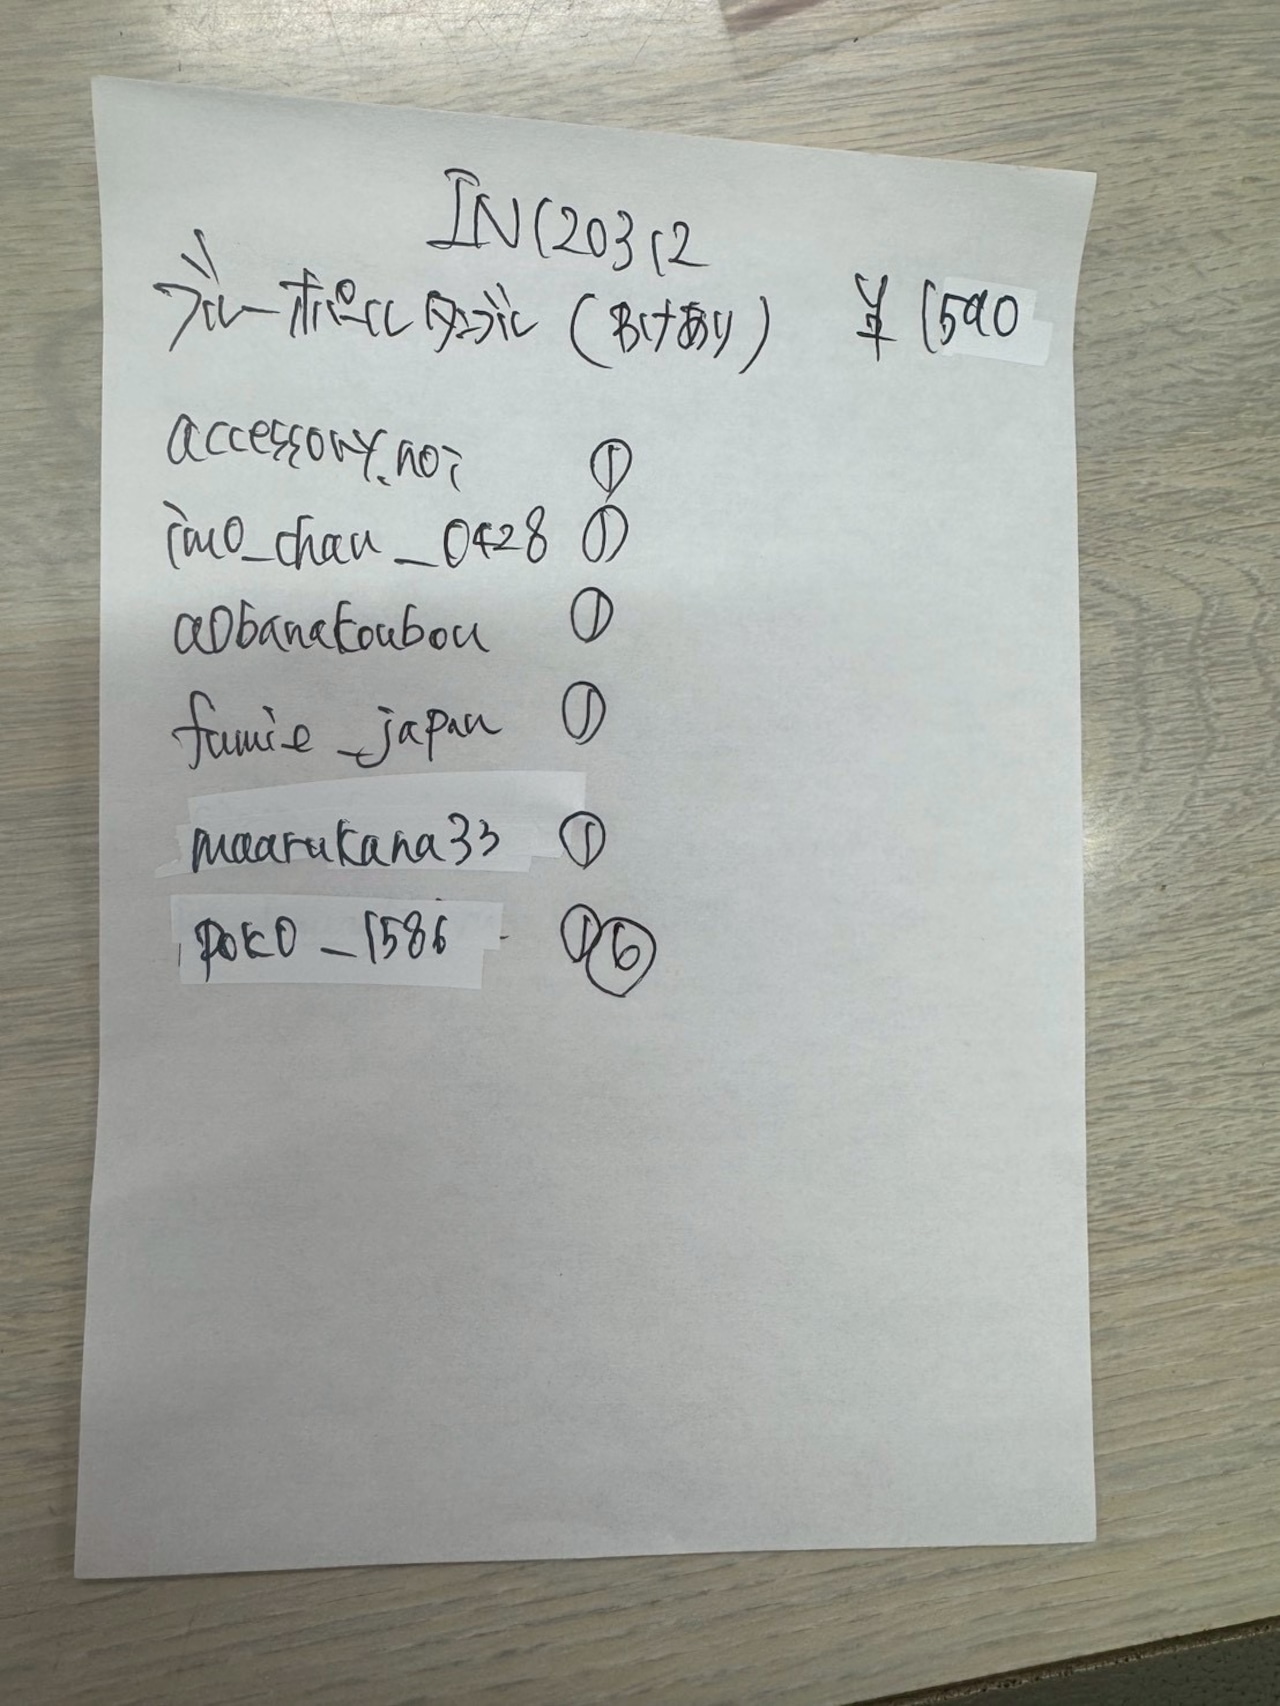 IN120312
ブルーオパールタンブル (あけあり) ¥1590
accessory.noi ①
imo_chan_0428 ①
aobanakoubou ①
fumie_japan ①
maarukana33 ①
poko_1586 ①⑥